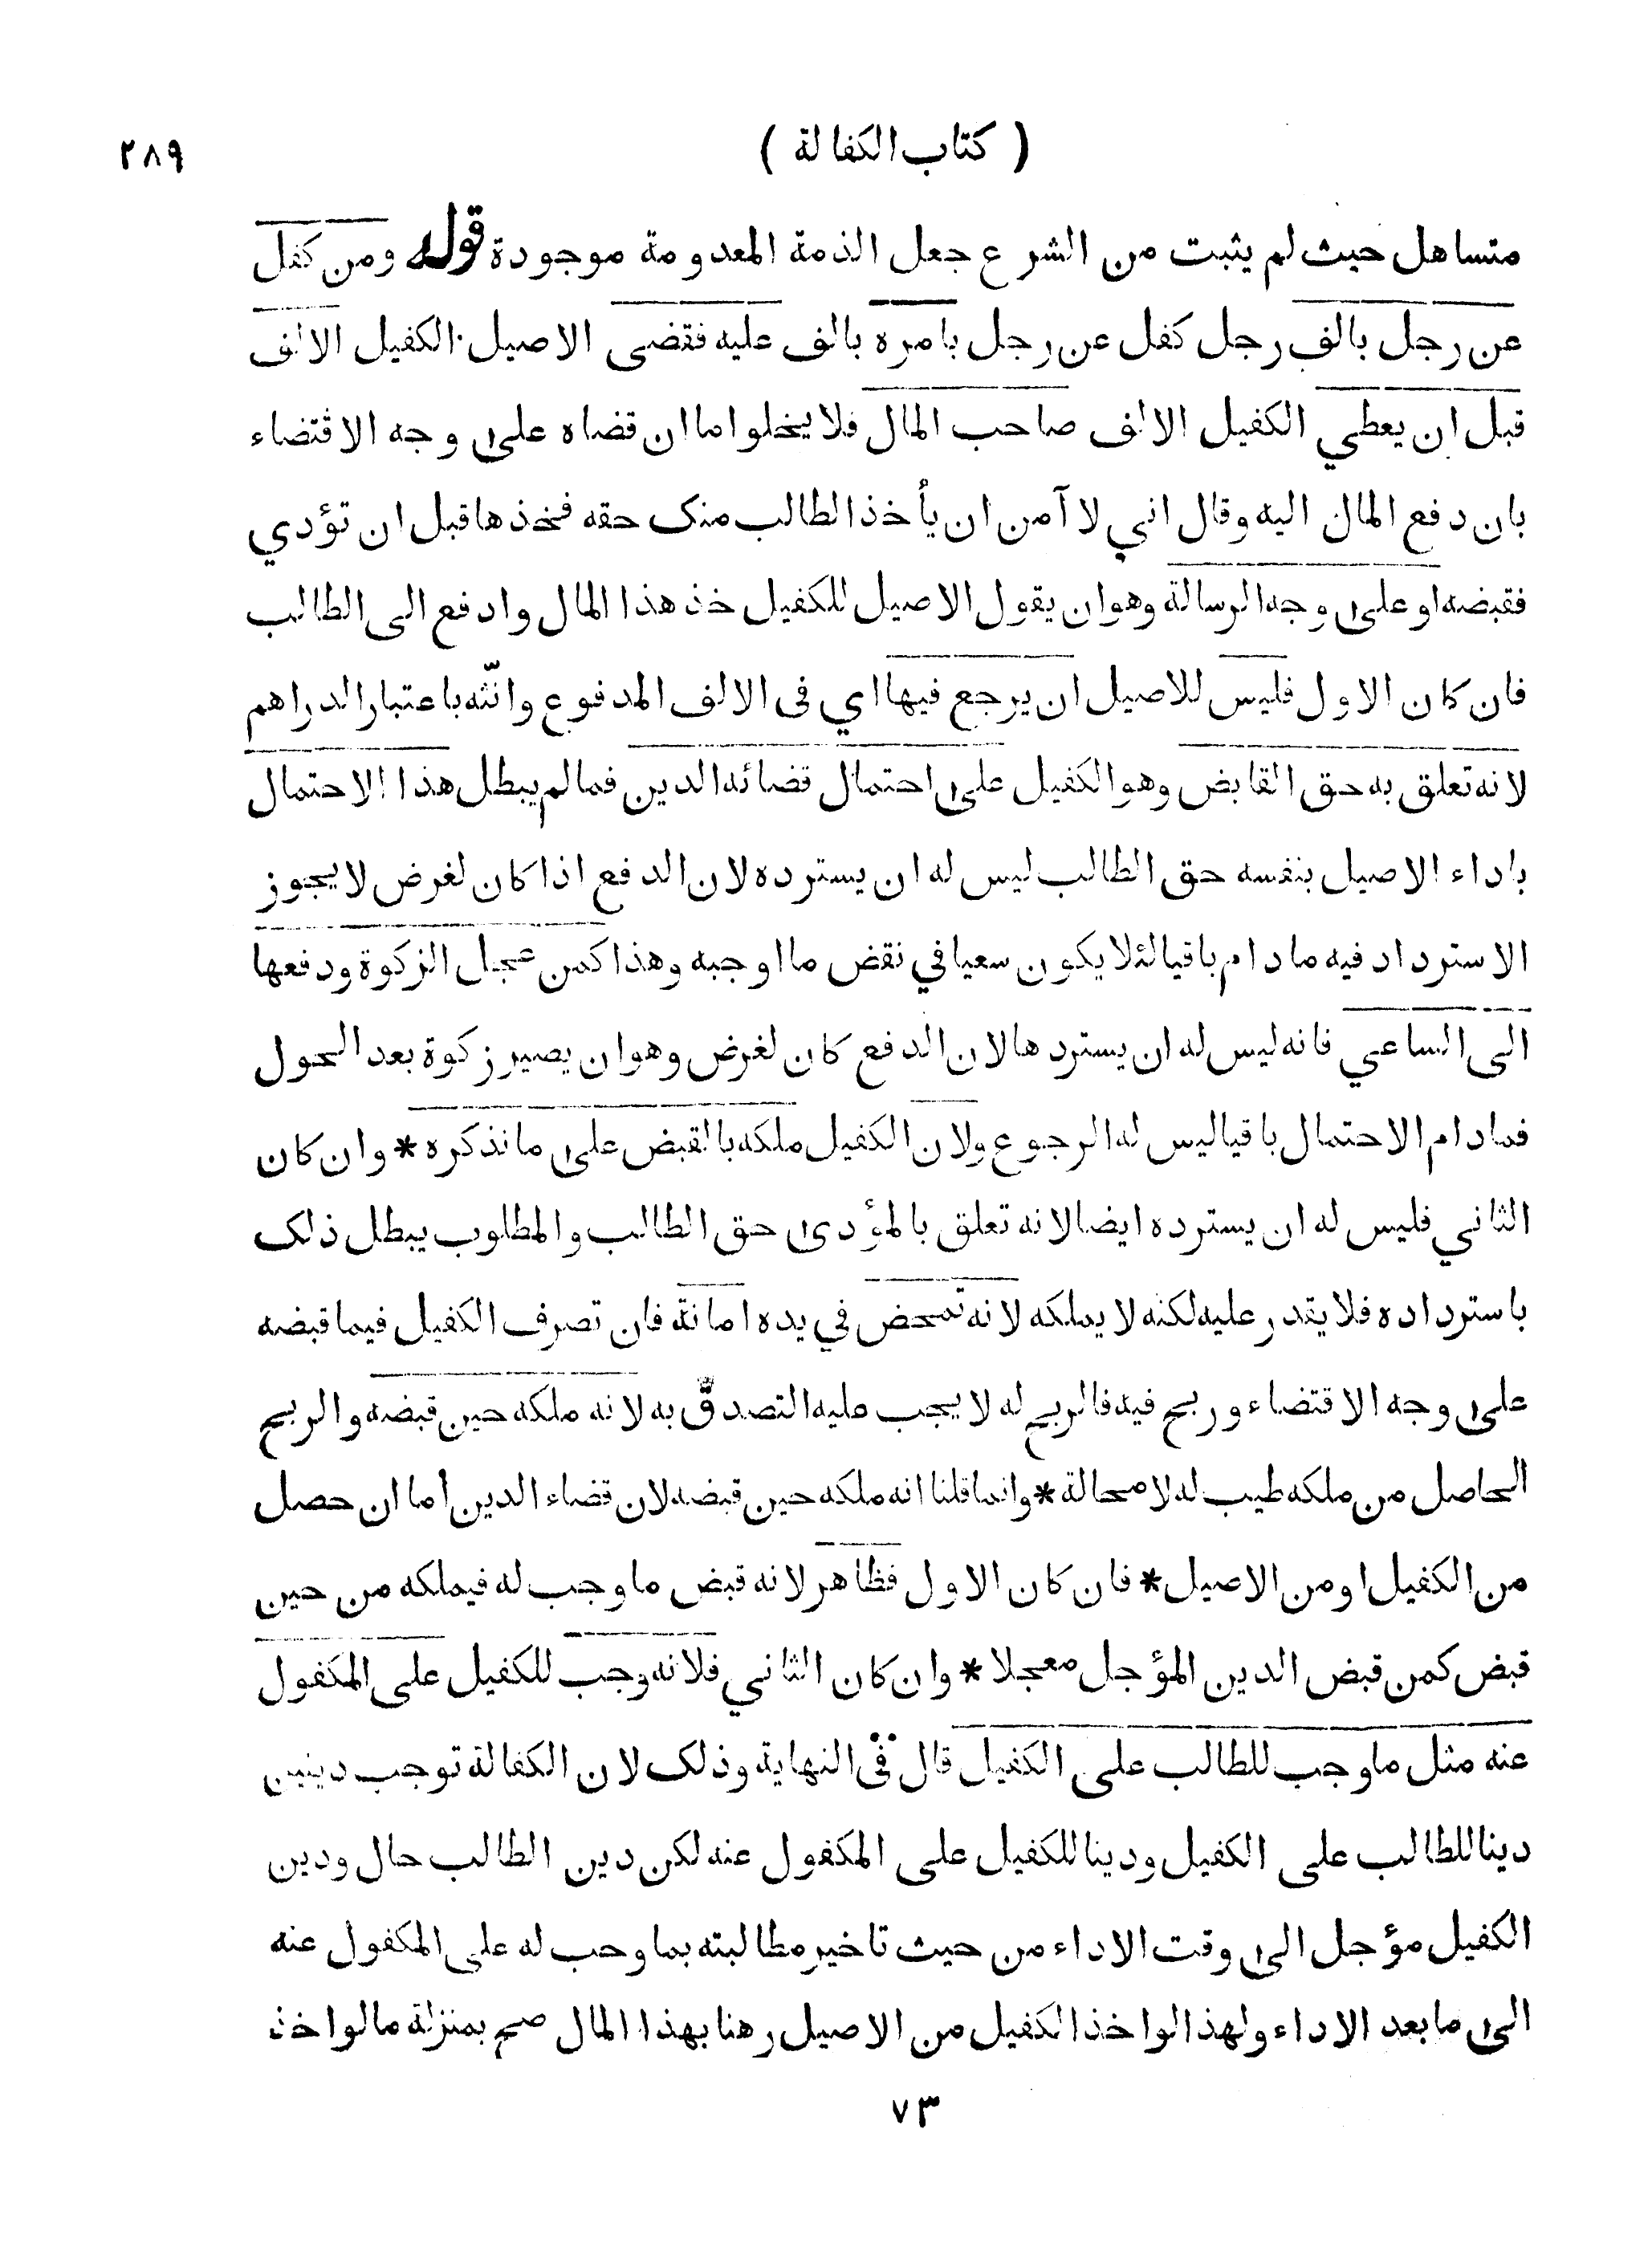 ( كتاب الكفالة )
٢٨٩
متساهل حيث لم يثبت من الشرع جعل الذمة المعدومة موجودة قوله ومن كفل
عن رجل بالف رجل كفل عن رجل بامره بالف عليه فقضى الاصيل الكفيل الالف
قبل ان يعطي الكفيل الالف صاحب المال فلا يخلوا ما ان قضاه على وجه الاقتضاء
بان دفع المال اليه وقال اني لا آمن ان يأخذ الطالب منك حقه فخذها قبل ان تؤدي
فقبضه او على وجه الرسالة وهو ان يقول الاصيل للكفيل خذ هذا المال وادفع الى الطالب
فان كان الاول فليس للاصيل ان يرجع فيها اي فى الالف المدفوع وانثه باعتبار الدراهم
لانه تعلق به حق القابض وهو الكفيل على احتمال قضائه الدين فما لم يبطل هذا الاحتمال
باداء الاصيل بنفسه حق الطالب ليس له ان يسترده لان الدفع اذا كان لغرض لا يجوز
الاسترداد فيه ما دام باقيا لئلا يكون سعيا في نقض ما اوجبه وهذا كمن عجل الزكوة ودفعها
الى الساعي فانه ليس له ان يستردها لان الدفع كان لغرض وهو ان يصير زكوة بعد الحول
فما دام الاحتمال باقيا ليس له الرجوع ولان الكفيل ملكه بالقبض على ما نذكره * وان كان
الثاني فليس له ان يسترده ايضا لانه تعلق بالمؤدى حق الطالب والمطلوب يبطل ذلك
باسترداده فلا يقدر عليه لكنه لا يملكه لانه تمحض في يده امانة فان تصرف الكفيل فيما قبضه
على وجه الاقتضاء وربح فيه فالربح له لا يجب عليه التصدق به لانه ملكه حين قبضه والربح
الحاصل من ملكه طيب له لا محالة * وانما قلنا انه ملكه حين قبضه لان قضاء الدين أما ان حصل
من الكفيل او من الاصيل * فان كان الاول فظاهر لانه قبض ما وجب له فيملكه من حين
قبض كمن قبض الدين المؤجل معجلا * وان كان الثاني فلانه وجب للكفيل على المكفول
عنه مثل ما وجب للطالب على الكفيل قال فى النهاية وذلك لان الكفالة توجب دينين
دينا للطالب على الكفيل ودينا للكفيل على المكفول عنه لكن دين الطالب حال ودين
الكفيل مؤجل الى وقت الاداء من حيث تاخير مطالبته بما وجب له على المكفول عنه
الى ما بعد الاداء ولهذا لو اخذ الكفيل من الاصيل رهنا بهذا المال صح بمنزلة ما لو اخذ
٧٣